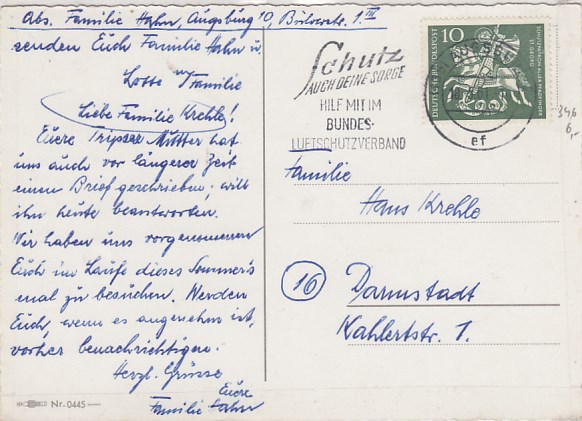 Abs. Familie Hahn, Augsburg 10, 1 III
senden Euch Familie Hahn u.
Lotte m/Familie
Liebe Familie Krehle!
Euere Tripser Mutter hat
uns auch vor längerer Zeit
einen Brief geschrieben, will
ihn heute beantworten.
Wir haben uns vorgenommen
Euch im Laufe dieses Sommer's
mal zu besuchen. Werden
Euch, wenn es angenehm ist,
vorher benachrichtigen.
Herzl. Grüsse
Euere
Familie Hahn
Nr. 0445
Schutz
AUCH DEINE SORGE
HILF MIT IM
BUNDES-
LUFTSCHUTZVERBAND
10
DEUTSCHE BUNDESPOST
SCHUTZPATRON ALLER PFADFINDER
ST. GEORG
ef
346
6,-
Familie
Hans Krehle
16 Darmstadt
Kahlertstr. 1.